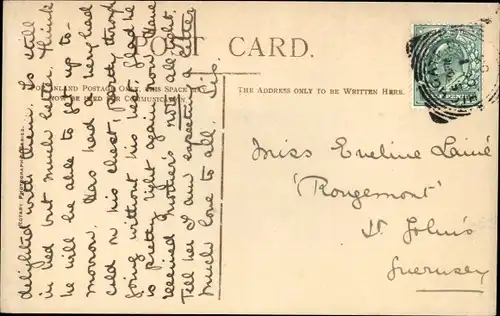 POST CARD.
FOR INLAND POSTAGE ONLY, THIS SPACE MAY
NOW BE USED FOR COMMUNICATION.
THE ADDRESS ONLY TO BE WRITTEN HERE.
ROTARY PHOTOGRAPHIC SERIES.
delighted with them. Is still
in bed but much better. Think
he will be able to get up to-
morrow. Has had a very bad
cold on his chest, partly through
going without his hat, &
is pretty right again now. Have
received Mother's note all right.
Tell her I am expecting a letter
Much love to all. Sis.
Miss Eveline Lainé
'Rougemont'
St. John's
Guernsey